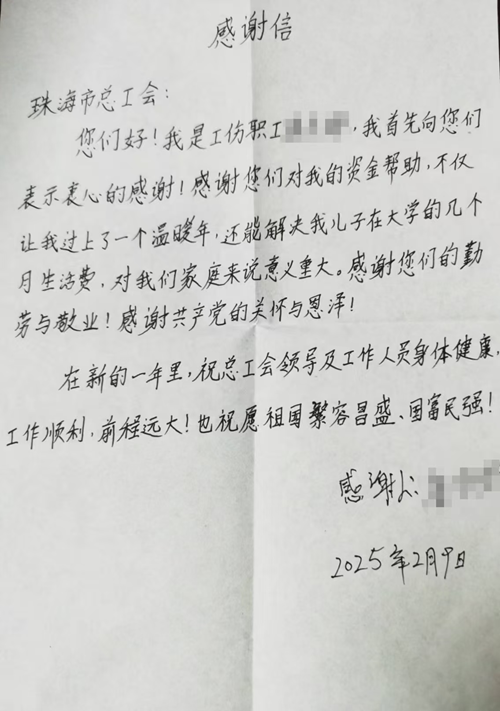 感谢信
珠海市总工会：
您们好！我是工伤职工，我首先向您们
表示衷心的感谢！感谢您们对我的资金帮助，不仅
让我过上了一个温暖年，还能解决我儿子在大学的几个
月生活费，对我们家庭来说意义重大。感谢您们的勤
劳与敬业！感谢共产党的关怀与恩泽！
在新的一年里，祝总工会领导及工作人员身体健康，
工作顺利，前程远大！也祝愿祖国繁容昌盛、国富民强！
感谢人：
2025年2月9日